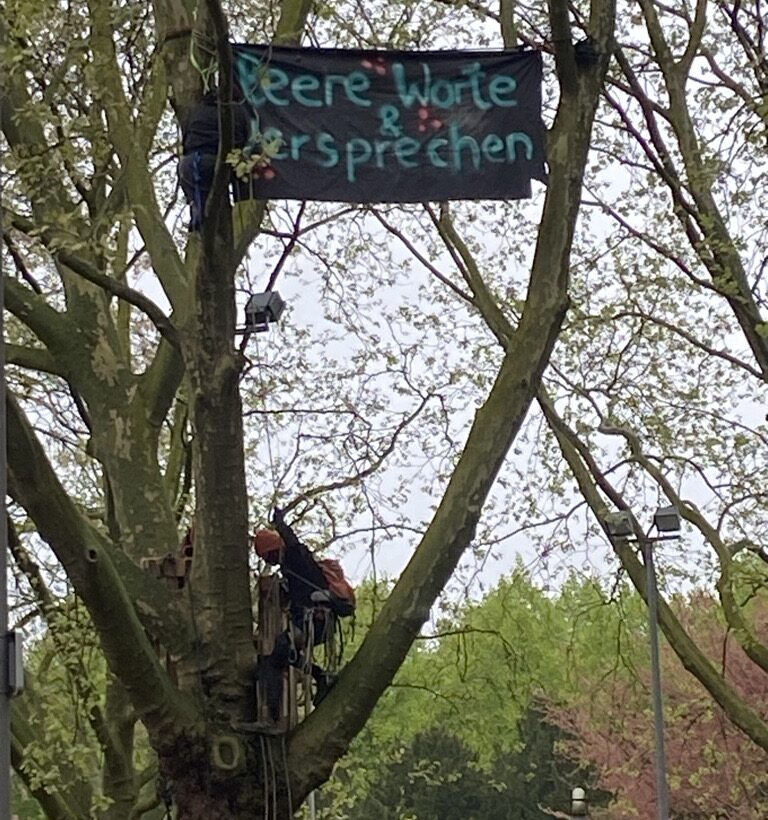 Leere Worte
&
Versprechen